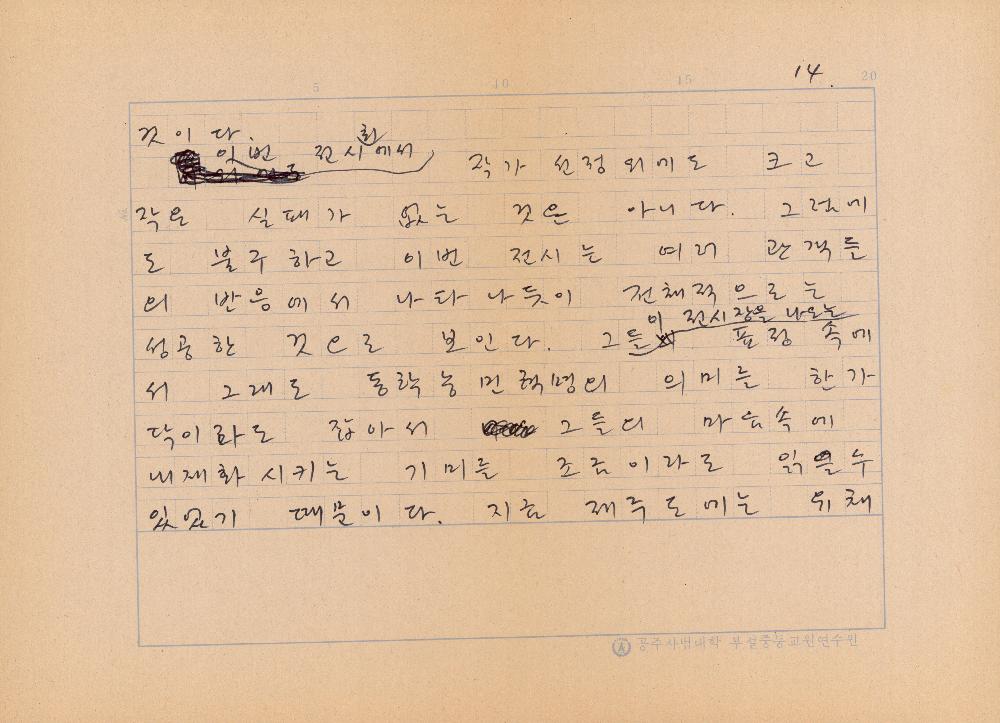 5 10 15 14 20
것이다.
이번 전시회에서 작가 선정 외에도 크고
작은 실패가 없는 것은 아니다. 그럼에
도 불구하고 이번 전시는 여러 관객들
의 반응에서 나타나듯이 전체적으로는
성공한 것으로 보인다. 그들이 전시장을 나오는 표정 속에
서 그래도 동학농민혁명의 의미를 한가
닥이라도 잡아서 그들의 마음속에
내재화시키는 기미를 조금이라도 읽을수
있었기 때문이다. 지금 제주도에는 유채
공주사범대학 부설중등교원연수원